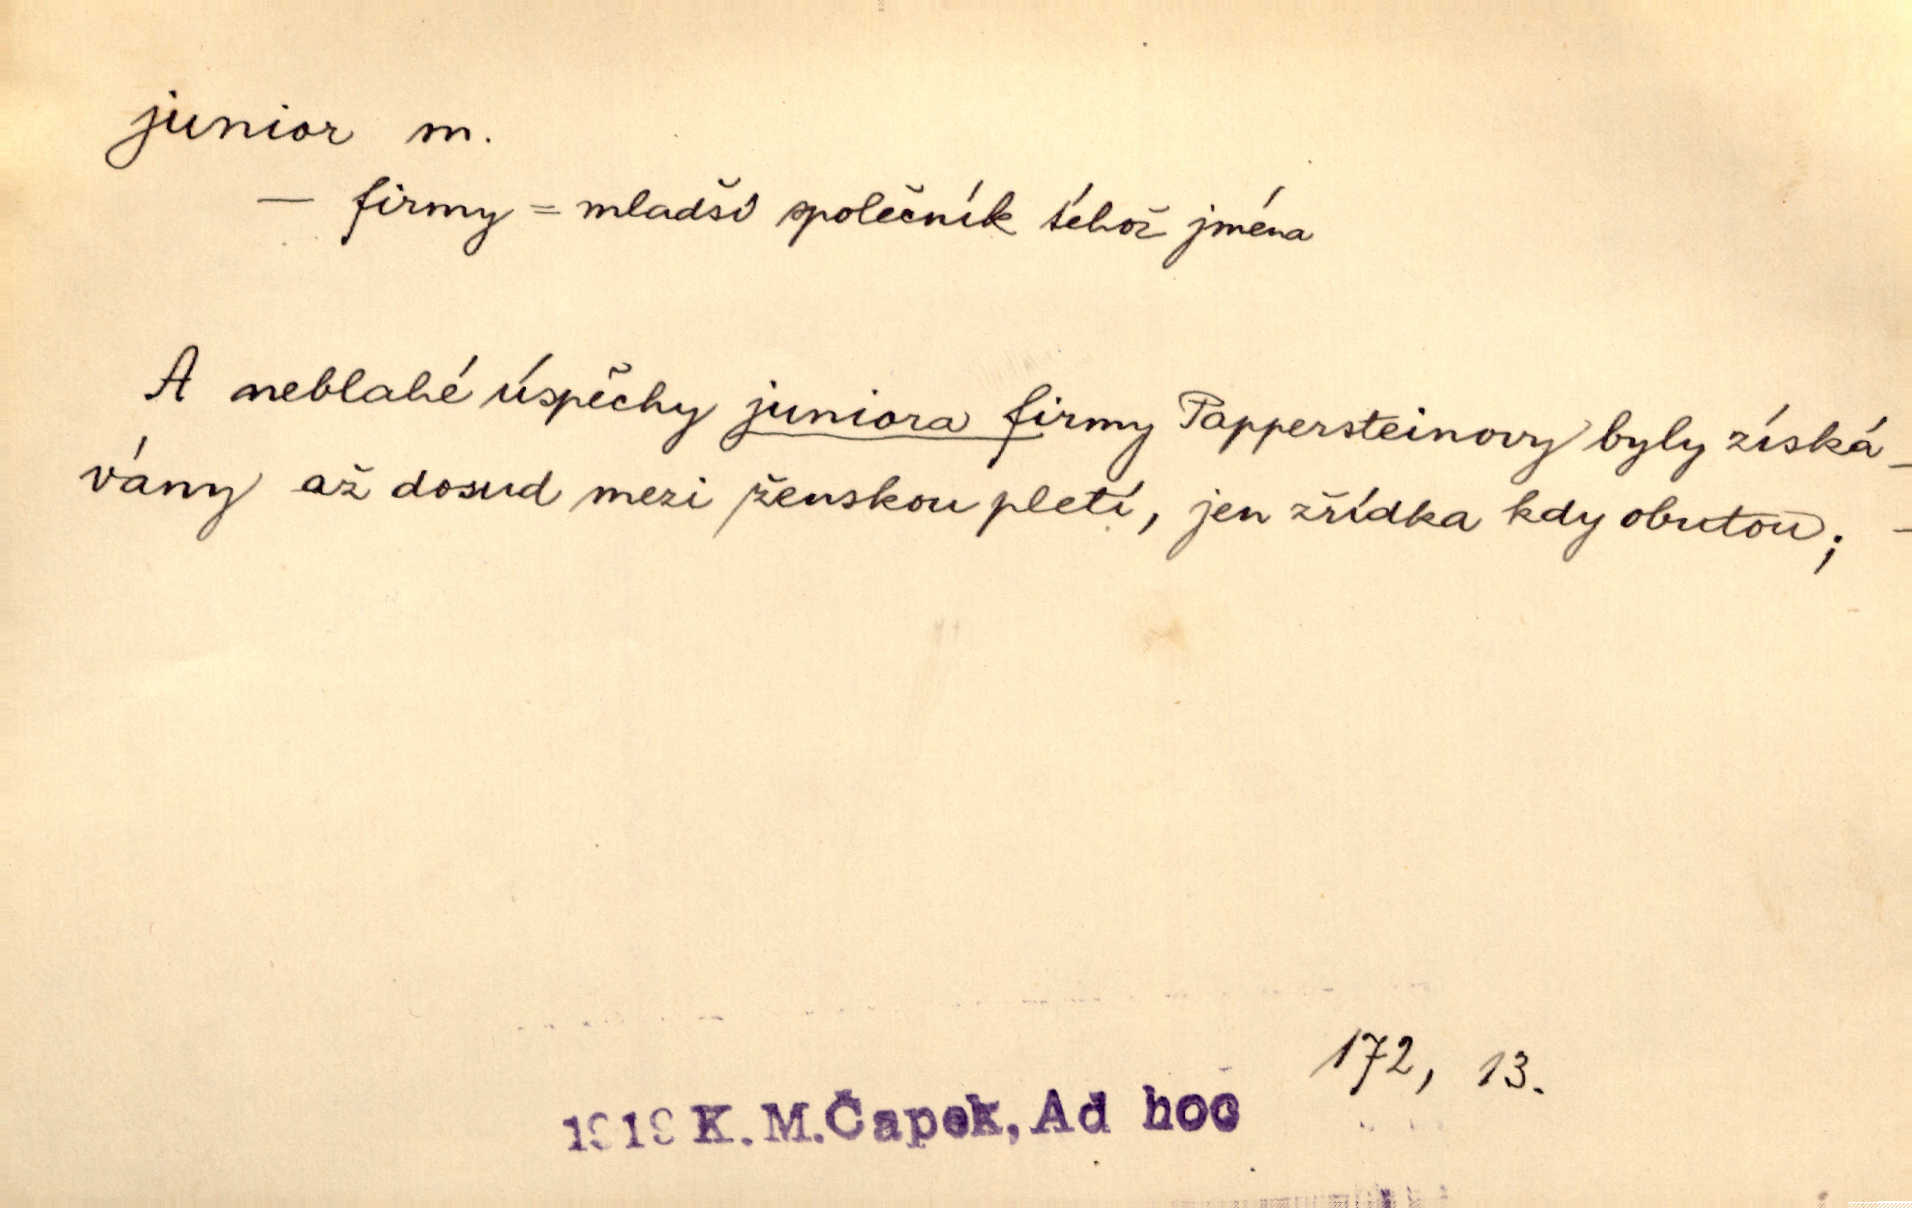 junior m.
— firmy = mladší společník téhož jména
A neblahé úspěchy juniora firmy Pappersteinovy byly získá-
vány až dosud mezi ženskou pletí, jen zřídka kdy obutou; -
172, 13.
1919 K. M. Čapek, Ad hoc